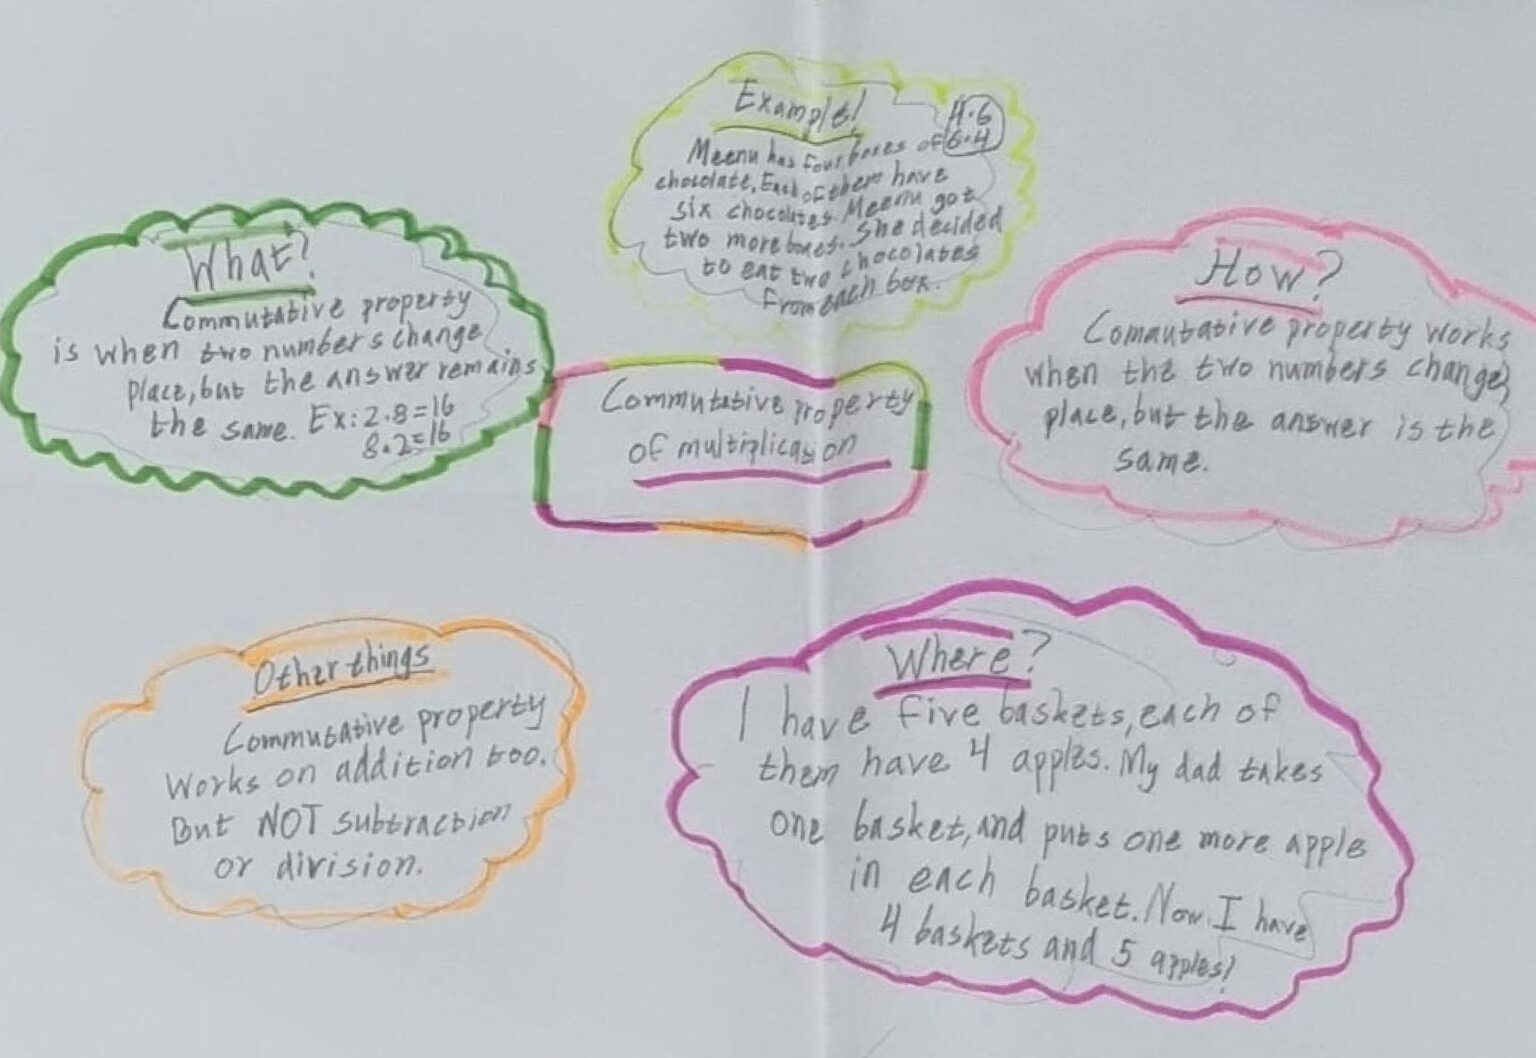 Example!
4·6
6·4
Meenu has four boxes of
chocolate. Each of them have
six chocolates. Meenu got
two more boxes. She decided
to eat two chocolates
from each box.
What?
Commutative property
is when two numbers change
place, but the answer remains
the same. Ex: 2·8=16
8·2=16
Commutative property
of multiplication
How?
Commutative property works
when the two numbers change
place, but the answer is the
same.
Other things
Commutative property
works on addition too.
But NOT subtraction
or division.
Where?
I have five baskets, each of
them have 4 apples. My dad takes
one basket, and puts one more apple
in each basket. Now I have
4 baskets and 5 apples!